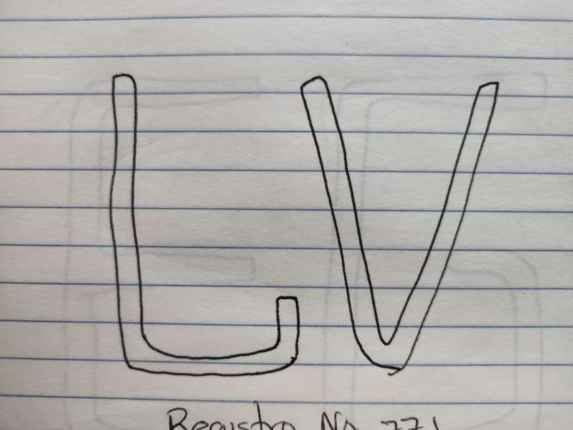 LV
Registro No 771